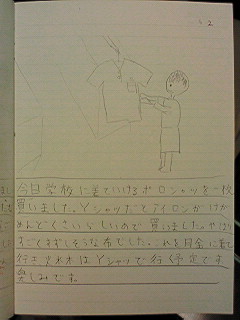 今日学校に着ていけるポロシャツを一枚
買いました。Yシャツだとアイロンがけが
めんどくさいらしいので買いました。やはり
すごくすずしそうな布でした。これを月金に着て
行き火水木はYシャツで行く予定です
楽しみです。